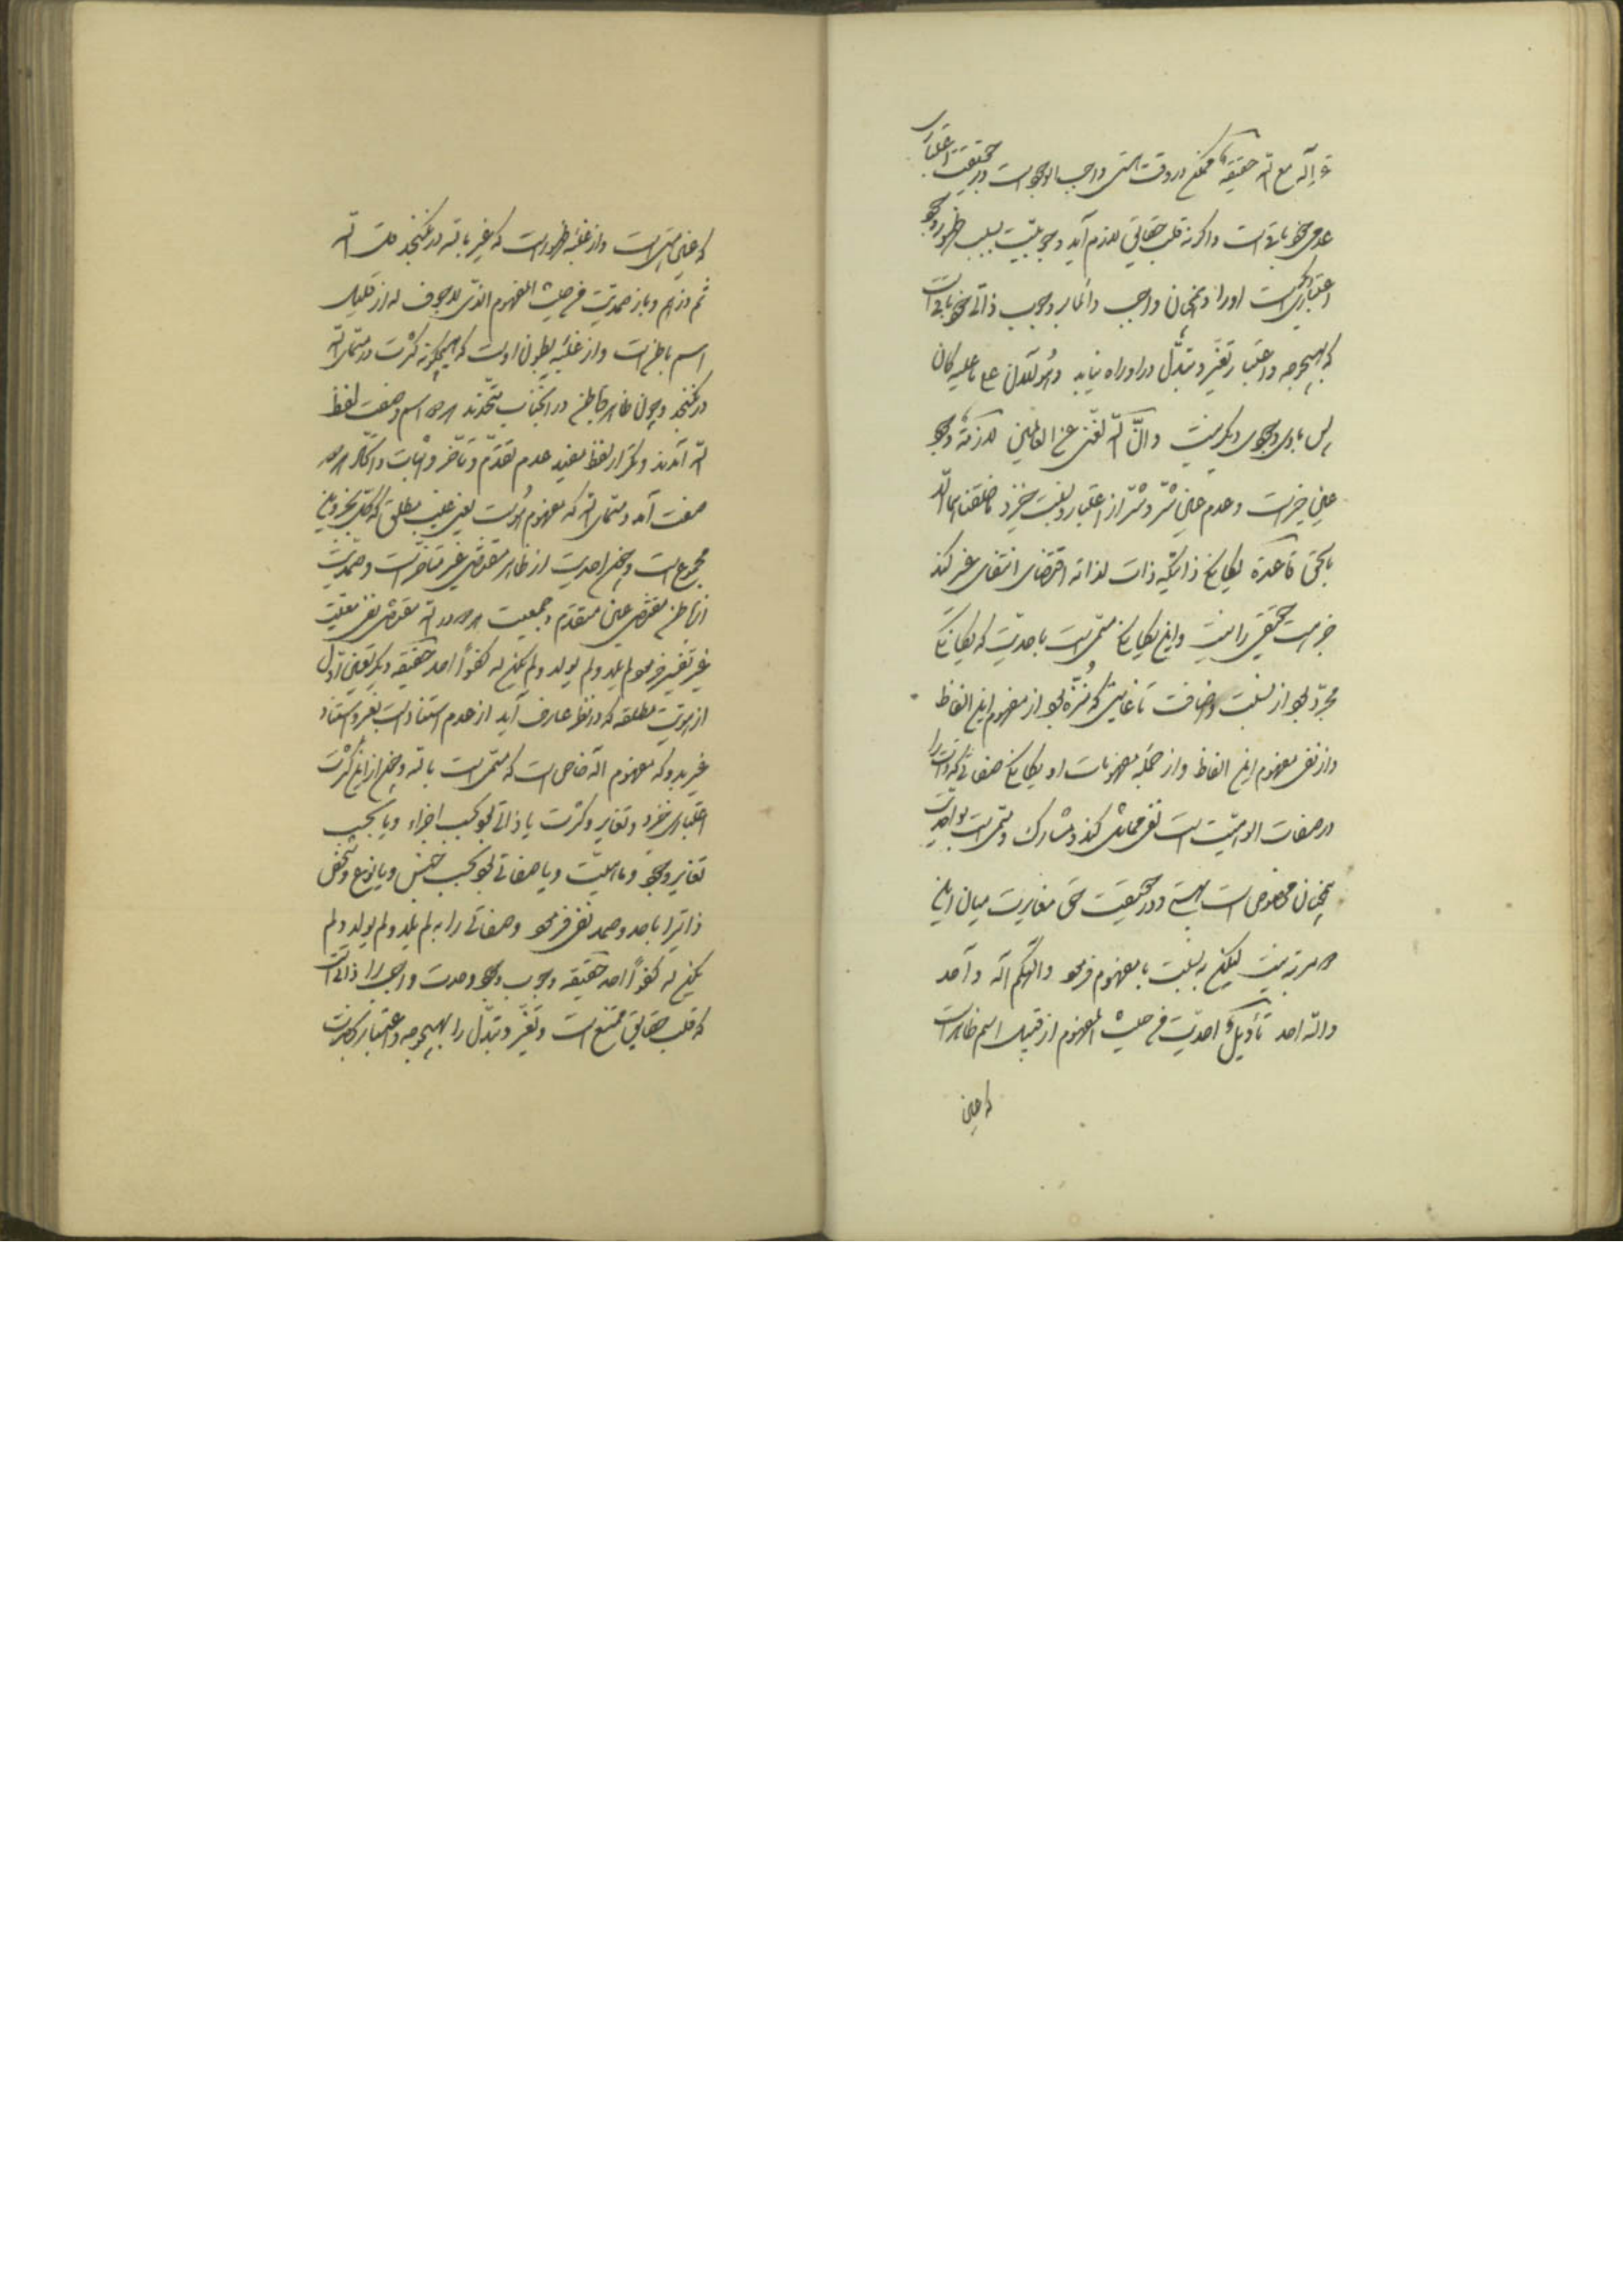 مع الله حقیقة ممکن در وقت هستی واجب الوجود است و در حقیقت اعتباری
عدمی خود باقی است و اگر نه قلب حقایق لازم آید و بسبب ظهور وجود
اعتباری او را و همچنان واجب دائما بر وجوب ذاتی خود باقی است
که بهیچوجه و اعتبار تغیر و تبدل در او راه نیابد و هو الآن علی ما علیه کان
پس با وی وجودی دیگر نیست و ان الله لغنی عن العالمین وجود
عین خیر است و عدم عین شر و شر از اعتبار و نسبت خیزد
یگانگی ذاتیکه ذات لذاته اقتضای انتفای غیر کند
جز هست حقیقی را نیست و این یگانگی مسمی است باحدیت که یگانگی
مجرد بود از نسبت و اضافت تا غایتی که منزه بود از مفهوم این الفاظ
و از نفی مفهوم این الفاظ و از جمله مفهومات او یگانگی صفاتی که ذات را
در صفات الوهیت است نفی مماثل کند و مشارک و مسمی است بواحدیت
همچنان مخصوص است و در حقیقت حق مغایرت میان این
هر دو مرتبه نیست لیکن به نسبت با مفهوم فرمود و الهکم اله واحد
والله احد احدیت فی حیث المفهوم از قبیل اسم ظاهر است
که عین
که عین است و از غلبه ظهور است که غیر با الله در نگنجد قل الله
ثم ذرهم و باز صمدیت فی حیث المفهوم الذی لا جوف له از قبیل
اسم باطن است و از غلبه بطون اوست که هیچگونه کثرت در مسمای الله
در نگنجد و چون ظاهر و باطن در آنجناب متحدند هر دو اسم وصفت لفظ
الله آمدند و تکرار لفظ مفید عدم تقدم و تأخر و اثبات هر دو
صفت آمد و مسمای الله که مفهوم هویت یعنی غیب مطلق
مجموع است احدیت از ظاهر مقتضی غیر متأخر است و صمدیت
از باطن مقتضی عین متقدم و جمعیت هر دو در الله مقتضی نفی
غیر فرمود لم یلد و لم یولد و لم یکن له کفوا احد حقیقة دیگر تعین اول
از هویت مطلقه که در نظر عارف آید از عدم استناد است بغیر و استناد
غیر بدو که مفهوم اله خاص است که مسمی است بالله و از این کثرت
اعتباری خیزد و تغایر و کثرت یا ذاتی بود بحسب اجزاء و یا بحسب
تغایر وجود و ماهیت و یا صفاتی بود بحسب جنس و یا نوع و شخص
ذاتی را باحد و صمد نفی فرمود و صفاتی را به لم یلد و لم یولد و لم
یکن له کفوا احد حقیقة وجوب وجود و وحدت واجب را ذاتی است
که قلب حقایق ممتنع است و تغیر و تبدل را بهیچوجه و اعتبار